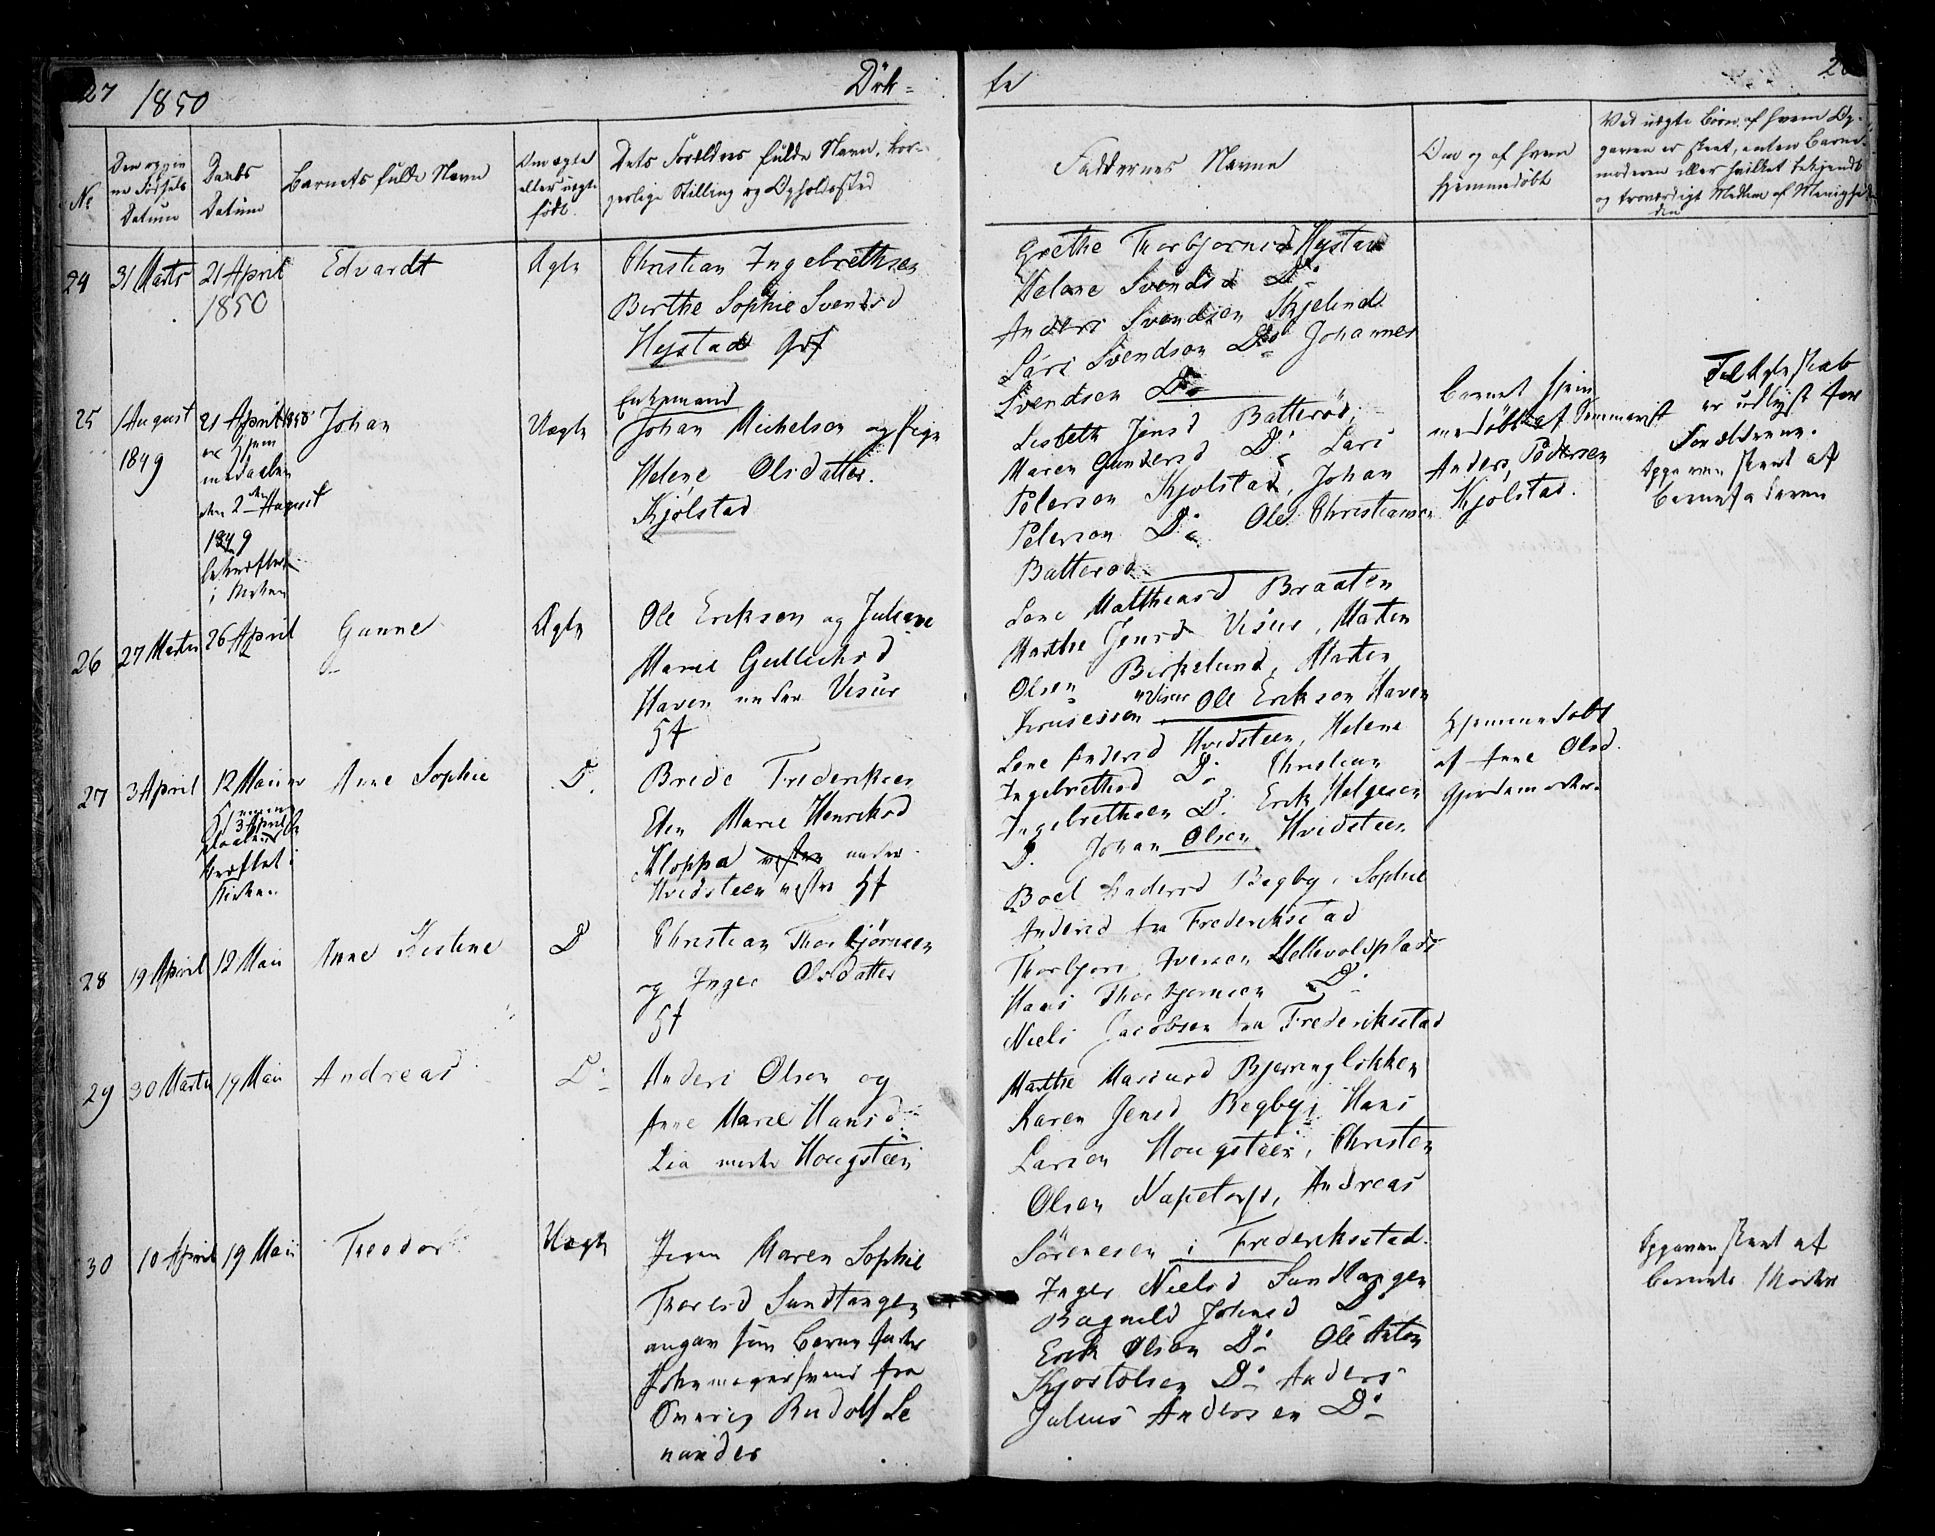 27 1850 Döb-
te
No
Den opgiv
ne Födsels
Datum
Daabs
Datum
Barnets fulde Navn
Om ægte
eller uægte
født.
Dets Forældres fulde Navn, bor-
gerlige Stilling og Opholdssted
Faddernes Navne
Om og af hvem
hjemmedöbt
Ved uægte Börn, af hvem Op-
gaven er skeet, enten Barne-
moderen eller hvilket bekjendt
og troværdigt Medlem af Menighe-
den
24
31 Marts
21 April
1850
Edvardt
Ægte
Christian Ingebrethsen
Berthe Sophie Svendsd
Hystad
Grethe Thorbjornsd Hystad
Helene Svendsd Do
Anders Svendsen Skjelind
Lars Svendsen Do Johannes
Svendsen Do
25
1 August
1849
21 April 1850
er hjem
medaaben
den 2den August
1849
bekræftet
i Kirken
Johan
Uægte
Enkemand
Johan Michelsen og Pige
Helene Olsdatter.
Kjölstad
Lisbeth Jensd Batteröd,
Maren Gundersd Do Lars
Petersen Kjolstad, Johan
Petersen Do Ole Christiansen
Batterød
Barnet hjem
medöbt af Seminarist
Anders Pedersen
Kjolstad.
Til Ægteskab
er udlyst for
Forældrene.
Opgaven skeet af
Barnefaderen
26
27 Marts
26 April
Gunne
Ægte
Ole Erikson og Juliane
Marie Gulliksd
Haven under Visur
Hf
Lene Matthiasd Braaten
Marthe Jensd Visur, Marten
Olsen Birkelund, Marten
Visur Ole Erikson Haven
27
3 April
12 Mai er
hjemme
3 April
bekræftet i
Kirken.
Anne Sophie
D.
Brede Frederiksen
Elen Marie Henriksd
Kloppa under
Hvidsteen Hf
Lene Andersd Hvidsteen, Helene
Ingebrethsd Do Christian
Ingebrethsen D. Erik Helgesen
D. Johan Olsen Hvidsteen
Hjemmedöbt
af Anne Olsd.
Gjordemoder
28
19 April
12 Mai
Anne Kistine
D
Christian Thorbjörnsen
og Inger Olsdatter
Hf
Boel Andersd Begby, Sophie
Andersd fra Frederikstad
Thorbjorn Iversen Hellevoldplads
Hans Thorbjornsen Do
Niels Jacobsen fra Frederiksstad
29
30 Marts
19 Mai
Andreas
D.
Anders Olsen og
Anne Marie Hansd
Lia under Hougsteen
Marthe Mariusd Bjerringlökken
Karen Jensd Begby, Hans
Larsen Hougsteen, Christen
Olsen Napetorp, Andreas
Sörensen i Frederiksstad.
30
10 April
19 Mai
Theodor
Uægte
Pigen Maren Sophie
Thoresd Sandtangen
angav som Barnefader
Skomagersvend fra
Sverig Rudolf Le
nander
Inger Nielsd Sandtangen
Ragnild Johnsd Do
Erik Olsen Do Ole Anton
Kjostolsen Do Anders
Julius Andersen Do
Opgaven skeet af
Barnets Moder